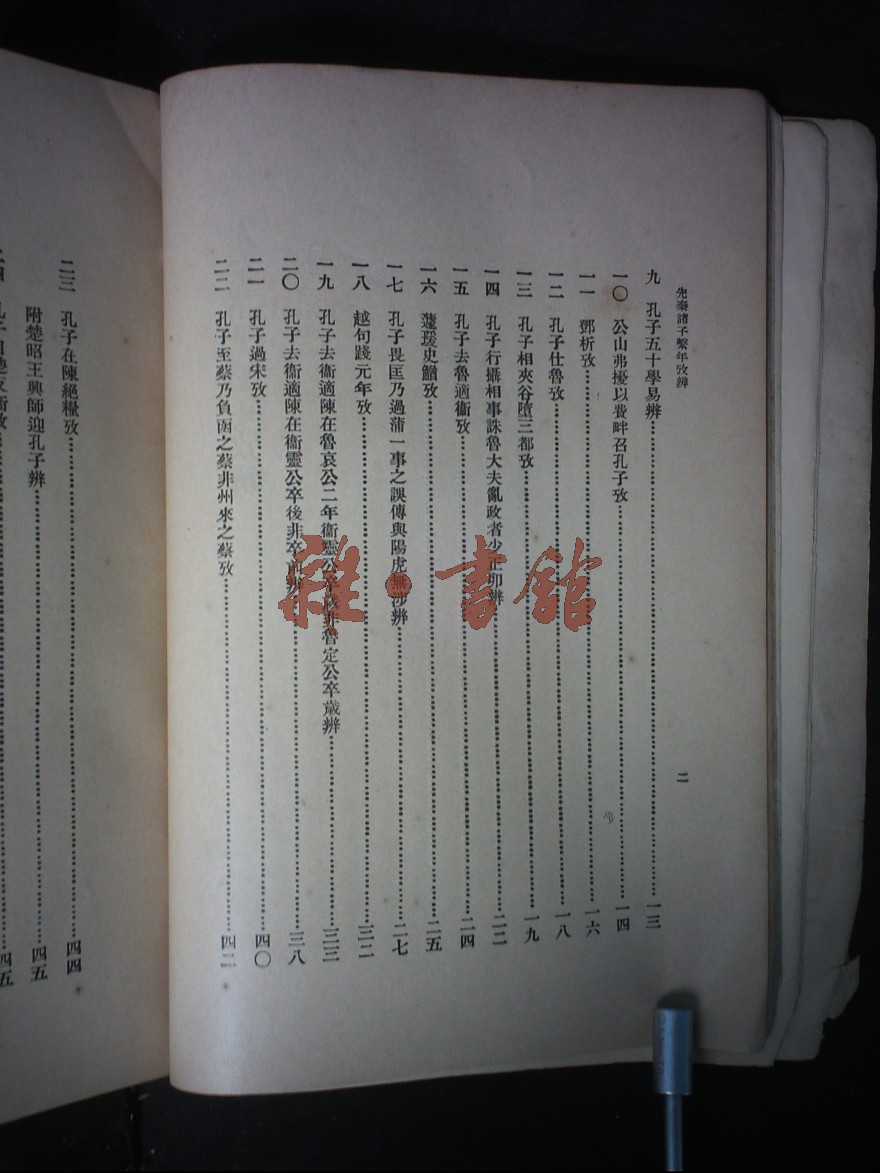 先秦諸子繫年攷辨
二
九 孔子五十學易辨……一三
一〇 公山弗擾以費畔召孔子攷……一四
一一 鄧析攷……一六
一二 孔子仕魯攷……一八
一三 孔子相夾谷墮三都攷……一九
一四 孔子行攝相事誅魯大夫亂政者少正卯辨……二二
一五 孔子去魯適衞攷……二四
一六 蘧瑗史鰌攷……二五
一七 孔子畏匡乃過蒲一事之誤傳與陽虎無涉辨……二七
一八 越句踐元年攷……三二
一九 孔子去衞適陳在魯哀公二年衞靈公卒歲非魯定公卒歲辨……三三
二〇 孔子去衞適陳在衞靈公卒後非卒前辨……三八
二一 孔子過宋攷……四〇
二二 孔子至蔡乃負函之蔡非州來之蔡攷……四二
二三 孔子在陳絕糧攷……四四
附楚昭王興師迎孔子辨……四五
二四 孔子自楚反衞攷……四五
雜·書館